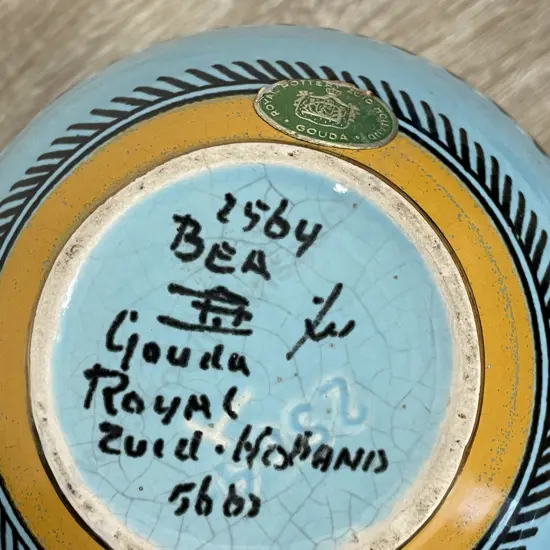 ROYAL POTTERY ZUID HOLLAND
· GOUDA ·
2564
BEA
Gouda
ROYAL
ZUID · HOLLAND